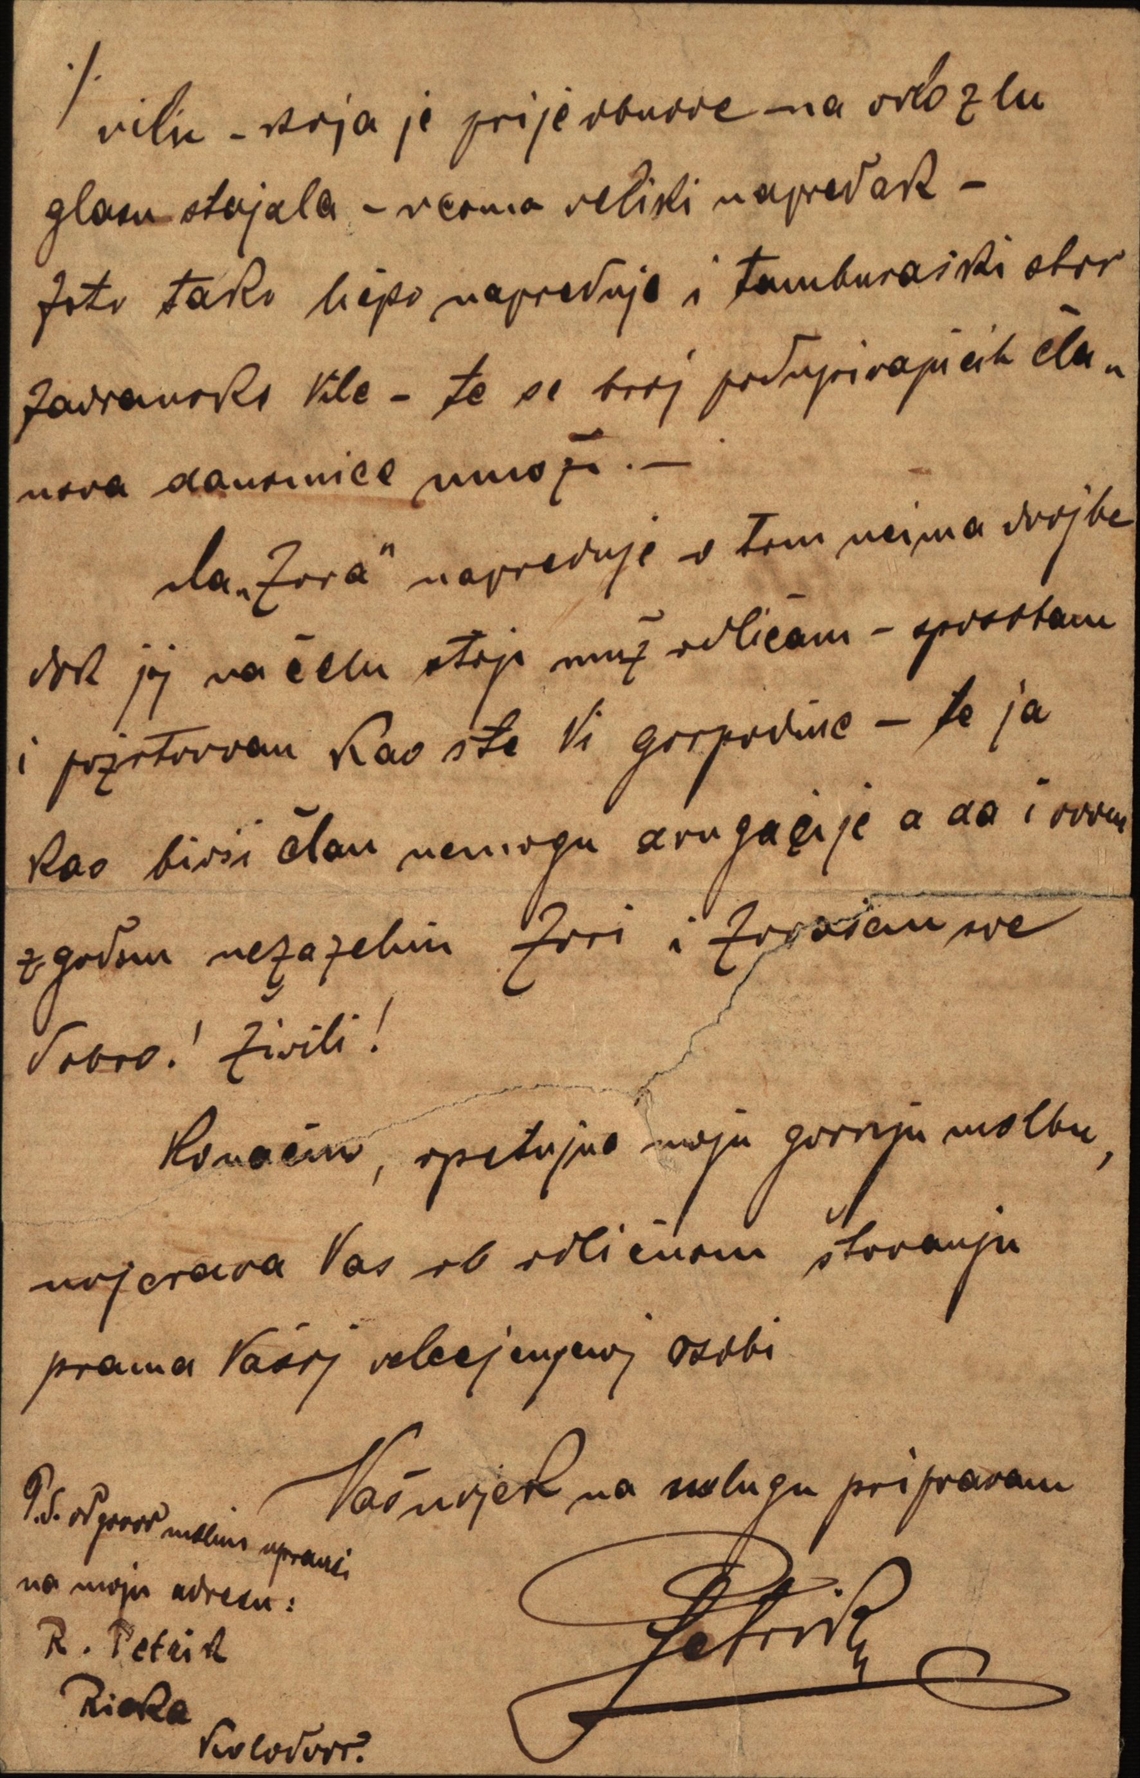 ./.
vilu - koja je prije obnove - na vrlo zlu
glasu stajala - veoma veliki napredak -
Isto tako liepo napreduje i tamburaški sbor
Jadranske Vile - te se broj podupirajućih čla„
nova danomice množi. -
Da „Zora" napreduje o tom neima dvojbe
dok joj na čelu stoji muž odličan - sposoban
i požrtvovan kao ste Vi gospodine - te ja
kao bivši član nemogu drugačije a da i ovom
zgodom nezaželim Zori i Zorašem sve
dobro! Živili!
Konačno, opetujuć moju gornju molbu,
uvjerava Vas ob odličnom štovanju
prama Vašoj velecjenjenoj osobi
Vaš uvjek na uslugu pripravan
Petrik
P.S. odgovor molim upraviti
na moju adresu:
R. Petrik
Rieka
Kolodvor.